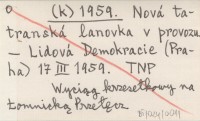 (k) 1959. Nová ta-
transká lanovka v provozu
— Lidová Demokracie (Pra-
ha) 17 III 1959. TNP
Wyciąg krzesełkowy na
Łomnicką Przełęcz